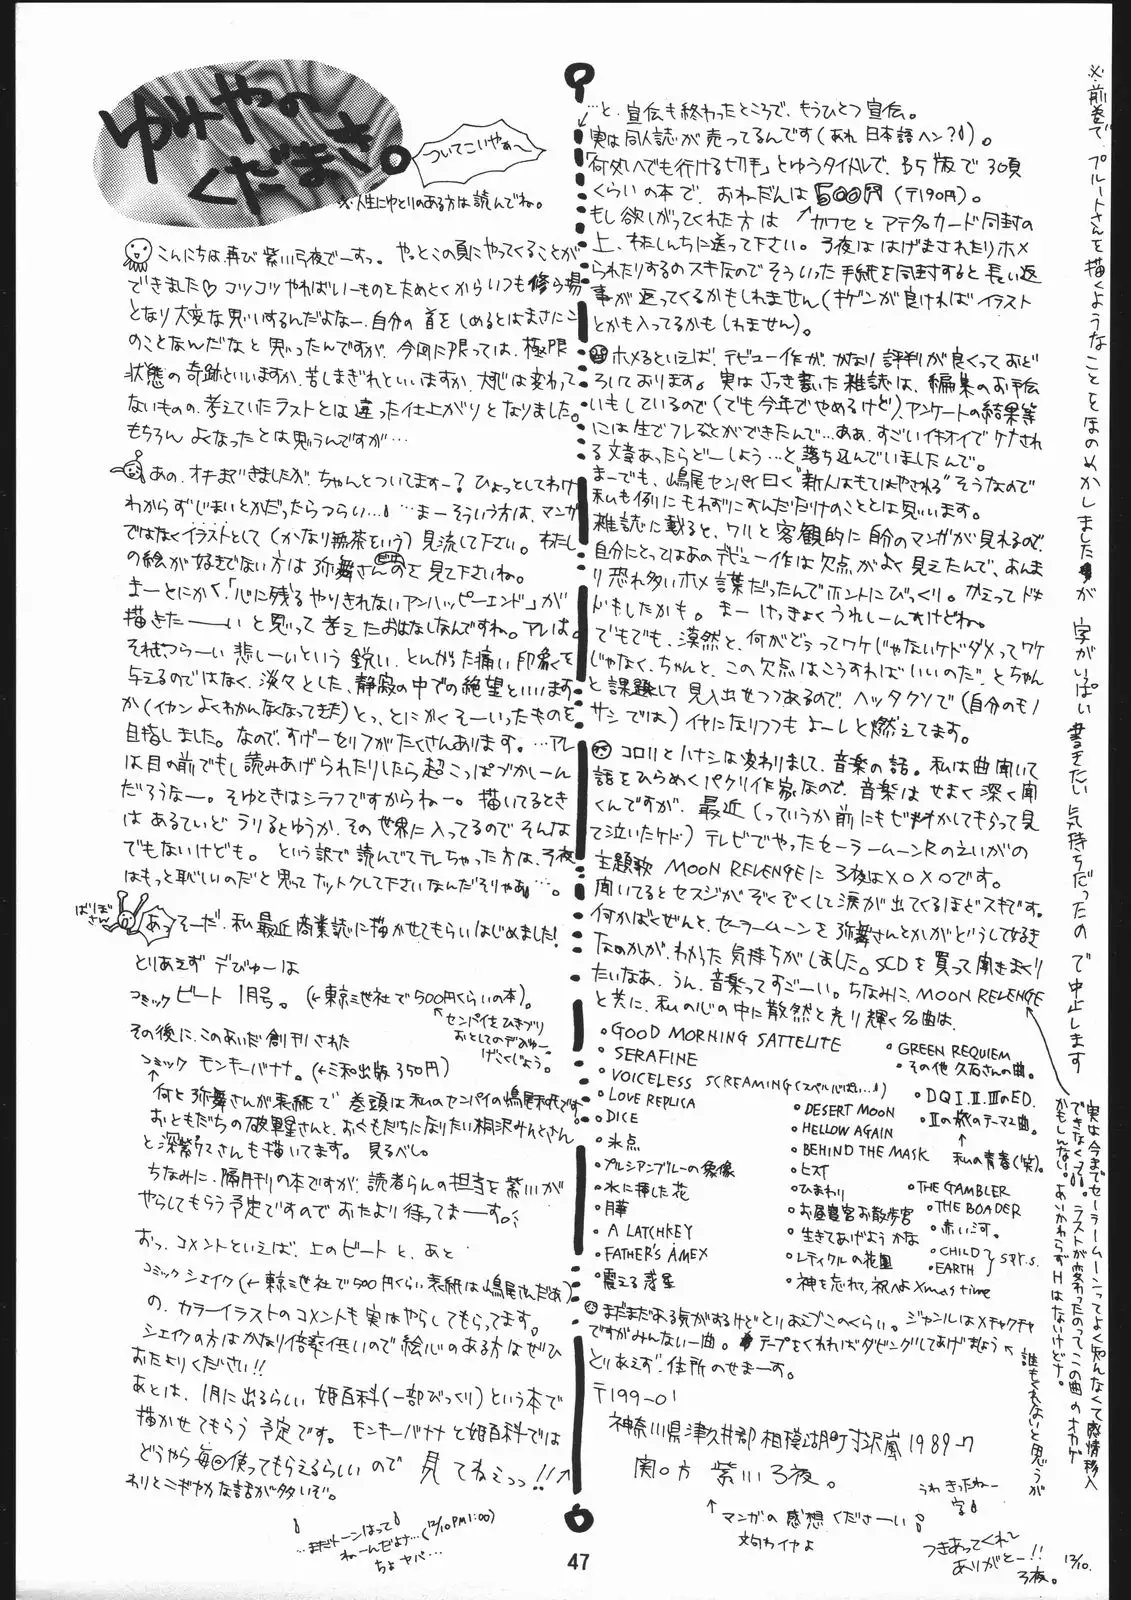 ゆみやの
くだまき。
ついてこいやぁ〜
※人生にゆとりのある方は読んでね。
こんにちは、再び紫川弓夜でーすっ。やっとこの頁にやってくることが
できました♡コツコツやればいーものをためとくからいつも修ら場
となり大変な思いするんだよなー、自分の首をしめるとはまさにこ
のことなんだなと思ったんですが、今回に限っては、極限
状態の奇跡といいますか、苦しまぎれといいますか、大すじは変わって
ないものの、考えていたラストとは違った仕上がりとなりました。
もちろん よくなったとは思うんですが…
あの、オキまできましたが、ちゃんとついてますー?ひょっとしてわけ
わからずじまいとかだったらつらい…。…まーそういう方は、マンガ
ではなくイラストとして(かなり無茶をいう)見流して下さい。わたし
の絵が好きでない方は弥舞さんのを見て下さいね。
まーとにかく、「心に残るやりきれないアンハッピーエンド」が
描きたーーーいと思って考えたおはなしなんですね。アレは。
それはつらーい悲しーいという鋭い、とんがった痛い印象を
与えるのではなく、淡々とした、静寂の中での絶望といいます
か(イカン よくわかんなくなってきた)とっ、とにかくそーいったものを
目指しました。なので、すげーセリフがたくさんあります。…アレ
は目の前でもし読みあげられたりしたら超こっぱづかしーん
だろうなー。そゆときはシラフですからねー。描いてるとき
はあるていどラリるとゆうか、その世界に入ってるのでそんな
でもないけども。という訳で読んでてテレちゃった方は、弓夜
はもっと恥しいのだと思ってナットクして下さいなんだそりゃあ…。
ばりぼさん
あっそーだ、私最近商業誌に描かせてもらいはじめました!
とりあえずデびゅーは
コミックビート 1月号。(←東京三世社で500円くらいの本)。
センパイをひきずり
おとしてのデびゅー。
げこくじょう。
その後に、このあいだ創刊された
コミック モンキーバナナ。(←三和出版350円)
何と弥舞さんが表紙で 巻頭は私のセンパイの嶋尾和氏です。
おともだちの破軍星さんと、おともだちになりたい相沢みんとさん
と深紫クスさんも描いてます。見るべし。
ちなみに、隔月刊の本ですが、読者らんの担当を紫川が
やらしてもらう予定ですのでおたより待ってまーーす。
おっ、コメントといえば、上のビートと、あと
コミックシェイク(←東京三世社で500円くらい表紙は嶋尾さんだぁ)
の、カラーイラストのコメントも実はやらしてもらってます。
シェイクの方はかなり倍率低いので絵心のある方はぜひ
おたよりください!!
あとは、1月に出るらしい 姫百科(一部びっくり)という本で
描かせてもらう予定です。モンキーバナナと姫百科では
どうやら毎回使ってもらえるらしいので 見てねえっっ!!
わりとニギやかな話が多いぞ。
…まだトーンはって
ねーんだよナ…(12/10 PM1:00)
ちょヤバ…
…と、宣伝も終わったところで、もうひとつ宣伝。
実は同人誌が売ってるんです(あれ 日本語ヘン?)。
「何処へでも行ける切手」とゆうタイトルで、B5版で30頁
くらいの本で、おねだんは500円(〒190円)。
もし欲しがってくれた方は カワセとアテ名カード同封の
上、わたしんちに送って下さい。弓夜ははげまされたりホメ
られたりするのスキなのでそういった手紙を同封すると長い返
事が返ってくるかもしれません(キゲンが良ければイラスト
とかも入ってるかもしれません)。
ホメるといえば、デビュー作が、かなり評判が良くっておど
ろいております。実はさっき書いた雑誌は、編集のお手伝
いもしているので(でも今年でやめるけど)、アンケートの結果等
には生でフレることができたんで…ああ、すごいイキオイでケナされ
る文章あったらどーしよう…と落ち込んでいましたんで。
まーでも、嶋尾センパイ曰く“新人はもてはやされる”そうなので
私も例にもれずにすんだだけのこととは思います。
雑誌に載ると、ワリと客観的に自分のマンガが見れるので、
自分にとってはあのデビュー作は欠点がよく見えたんで、あんま
り恐れ多いホメ言葉だったんでホントにびっくり。かえってドキ
ドキしたかも。まー けっきょくうれしーんすけどね。
でもでも、漠然と、何がどぅってワケじゃないケドダメってワケ
じゃなく、ちゃんと、この欠点はこうすればいいのだ、とちゃん
と課題として見い出せつつあるので、ヘッタクソで(自分のモノ
サシでは)イヤになりつつもよーしと燃えてます。
コロリとハナシは変わりまして、音楽の話。私は曲聞いて
話をひらめくパクリ作家なので、音楽はせまく深く聞
くんですが、最近(っていうか前にもビデオかしてもらって見
て泣いたケド)テレビでやったセーラームーンRのえいがの
主題歌 MOON REVENGEに弓夜はメロメロです。
聞いてるとセスジがぞくぞくして涙が出てくるほどスキです。
何かばくぜんと、セーラームーンを弥舞さんとかがどうして好き
なのかが、わかった気持ちがしました。SCDを買って聞きまくり
たいなあ、うん、音楽ってすごーい。ちなみに、MOON REVENGE
と共に、私の心の中に散然と光り輝く名曲は、
・GOOD MORNING SATTELITE
・SERAFINE
・VOICELESS SCREAMING(スペルしんぱい…)
・LOVE REPLICA
・DICE
・氷点
・プルシアンブルーの肖像
・水に挿した花
・月華
・A LATCHKEY
・FATHER'S AMEX
・震える惑星
・DESERT MOON
・HELLOW AGAIN
・BEHIND THE MASK
・ヒスイ
・ひまわり
・お昼寝宮お散歩宮
・生きてあげようかな
・レティクルの花園
・神を忘れ、祝えXmas time
・GREEN REQUIEM
・その他 久石さんの曲。
・DQI.II.IIIのED.
・IIの旅のテーマ2曲。
私の青春(笑)。
・THE GAMBLER
・THE BOADER
・赤い河。
・CHILD
・EARTH
まだまだある気がするけどとりあえずこのくらい。ジャンルはメチャクチャ
ですがみんないー曲。テープをくれればダビングしてあげましょう
誰もくれないと思うが
とりあえず、住所のせまーす。
〒199-01
神奈川県津久井郡相模湖町寸沢嵐1989-7
関口方 紫川弓夜。
マンガの感想くださーい
文句わイヤよ
うわきったねー
字
つきあってくれて
ありがとー!!
弓夜。
12/10.
※前巻で、プルートさんを描くようなことをほのめかしましたが 字がいっぱい書きたい気持ちだったので中止します
実は今までセーラームーンってよく知んなくて感情移入
できなくって。ラストが変わったのってこの曲のオカゲ
かもしんない。あいかわらずHはないけどナ。
47